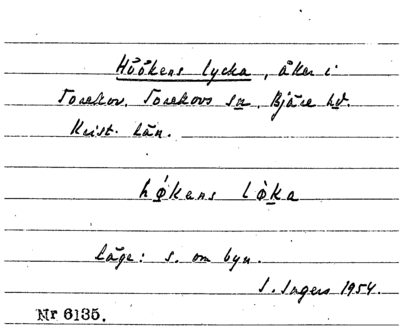 Höökens lycka, åker i
Torekov, Torekovs sn, Bjäre hd.
Krist. län.
hø̀kans lø̀ka
Läge: S. om byn.
S. Ingers 1954.
Nr 6135.